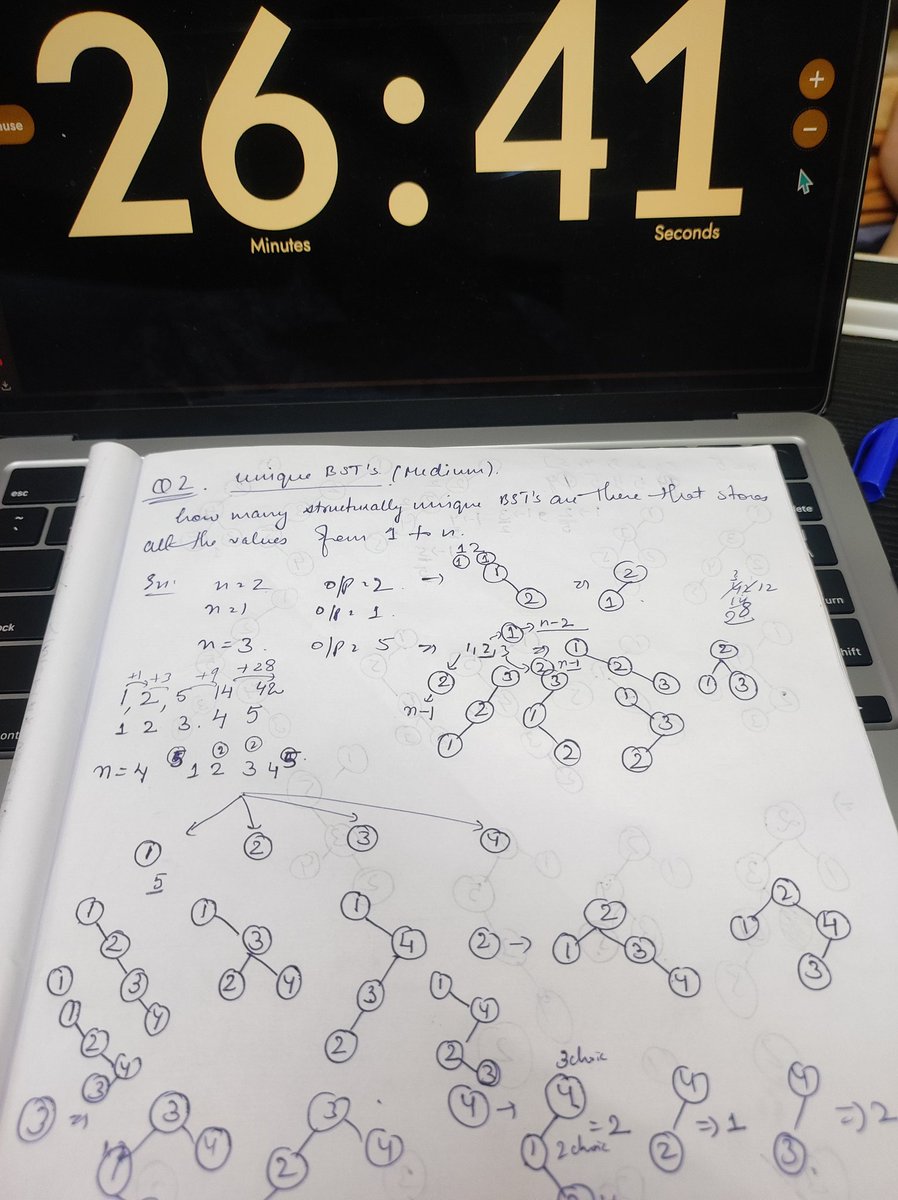 26:41
use
+
−
Minutes
Seconds
esc
~
ock
ont
ete
urn
hift
Q2. Unique BST's (Medium).
how many structurally unique BST's are there that stores
all the values from 1 to n.
n=2 o/p=2 →
12
1 1 1 2
2 1
n=1 o/p=1
n=3. o/p=5 ⇒ 1,2,3 ⇒
1 → n-2
2 n-1
2
n-1
3 2 1
3 1 2
1 2 3
1 3 2
2 1 3
14
28
+1 +3 +9 +28
1, 2, 5 14 42
1 2 3. 4 5
n=4 5 1 2 3 4 5
2 2
1 2 3 4
5
1 2 3 4
1 3 2 4
1 4 3 2
2 → 2 1 3 4
2 1 4 3
1
1 2 4 3
1 4 2 3
3 ⇒ 3 1 4
3 2 4
4 → 3 choic
4 1 = 2
2 choic
4 2 ⇒ 1
4 3 ⇒ 2